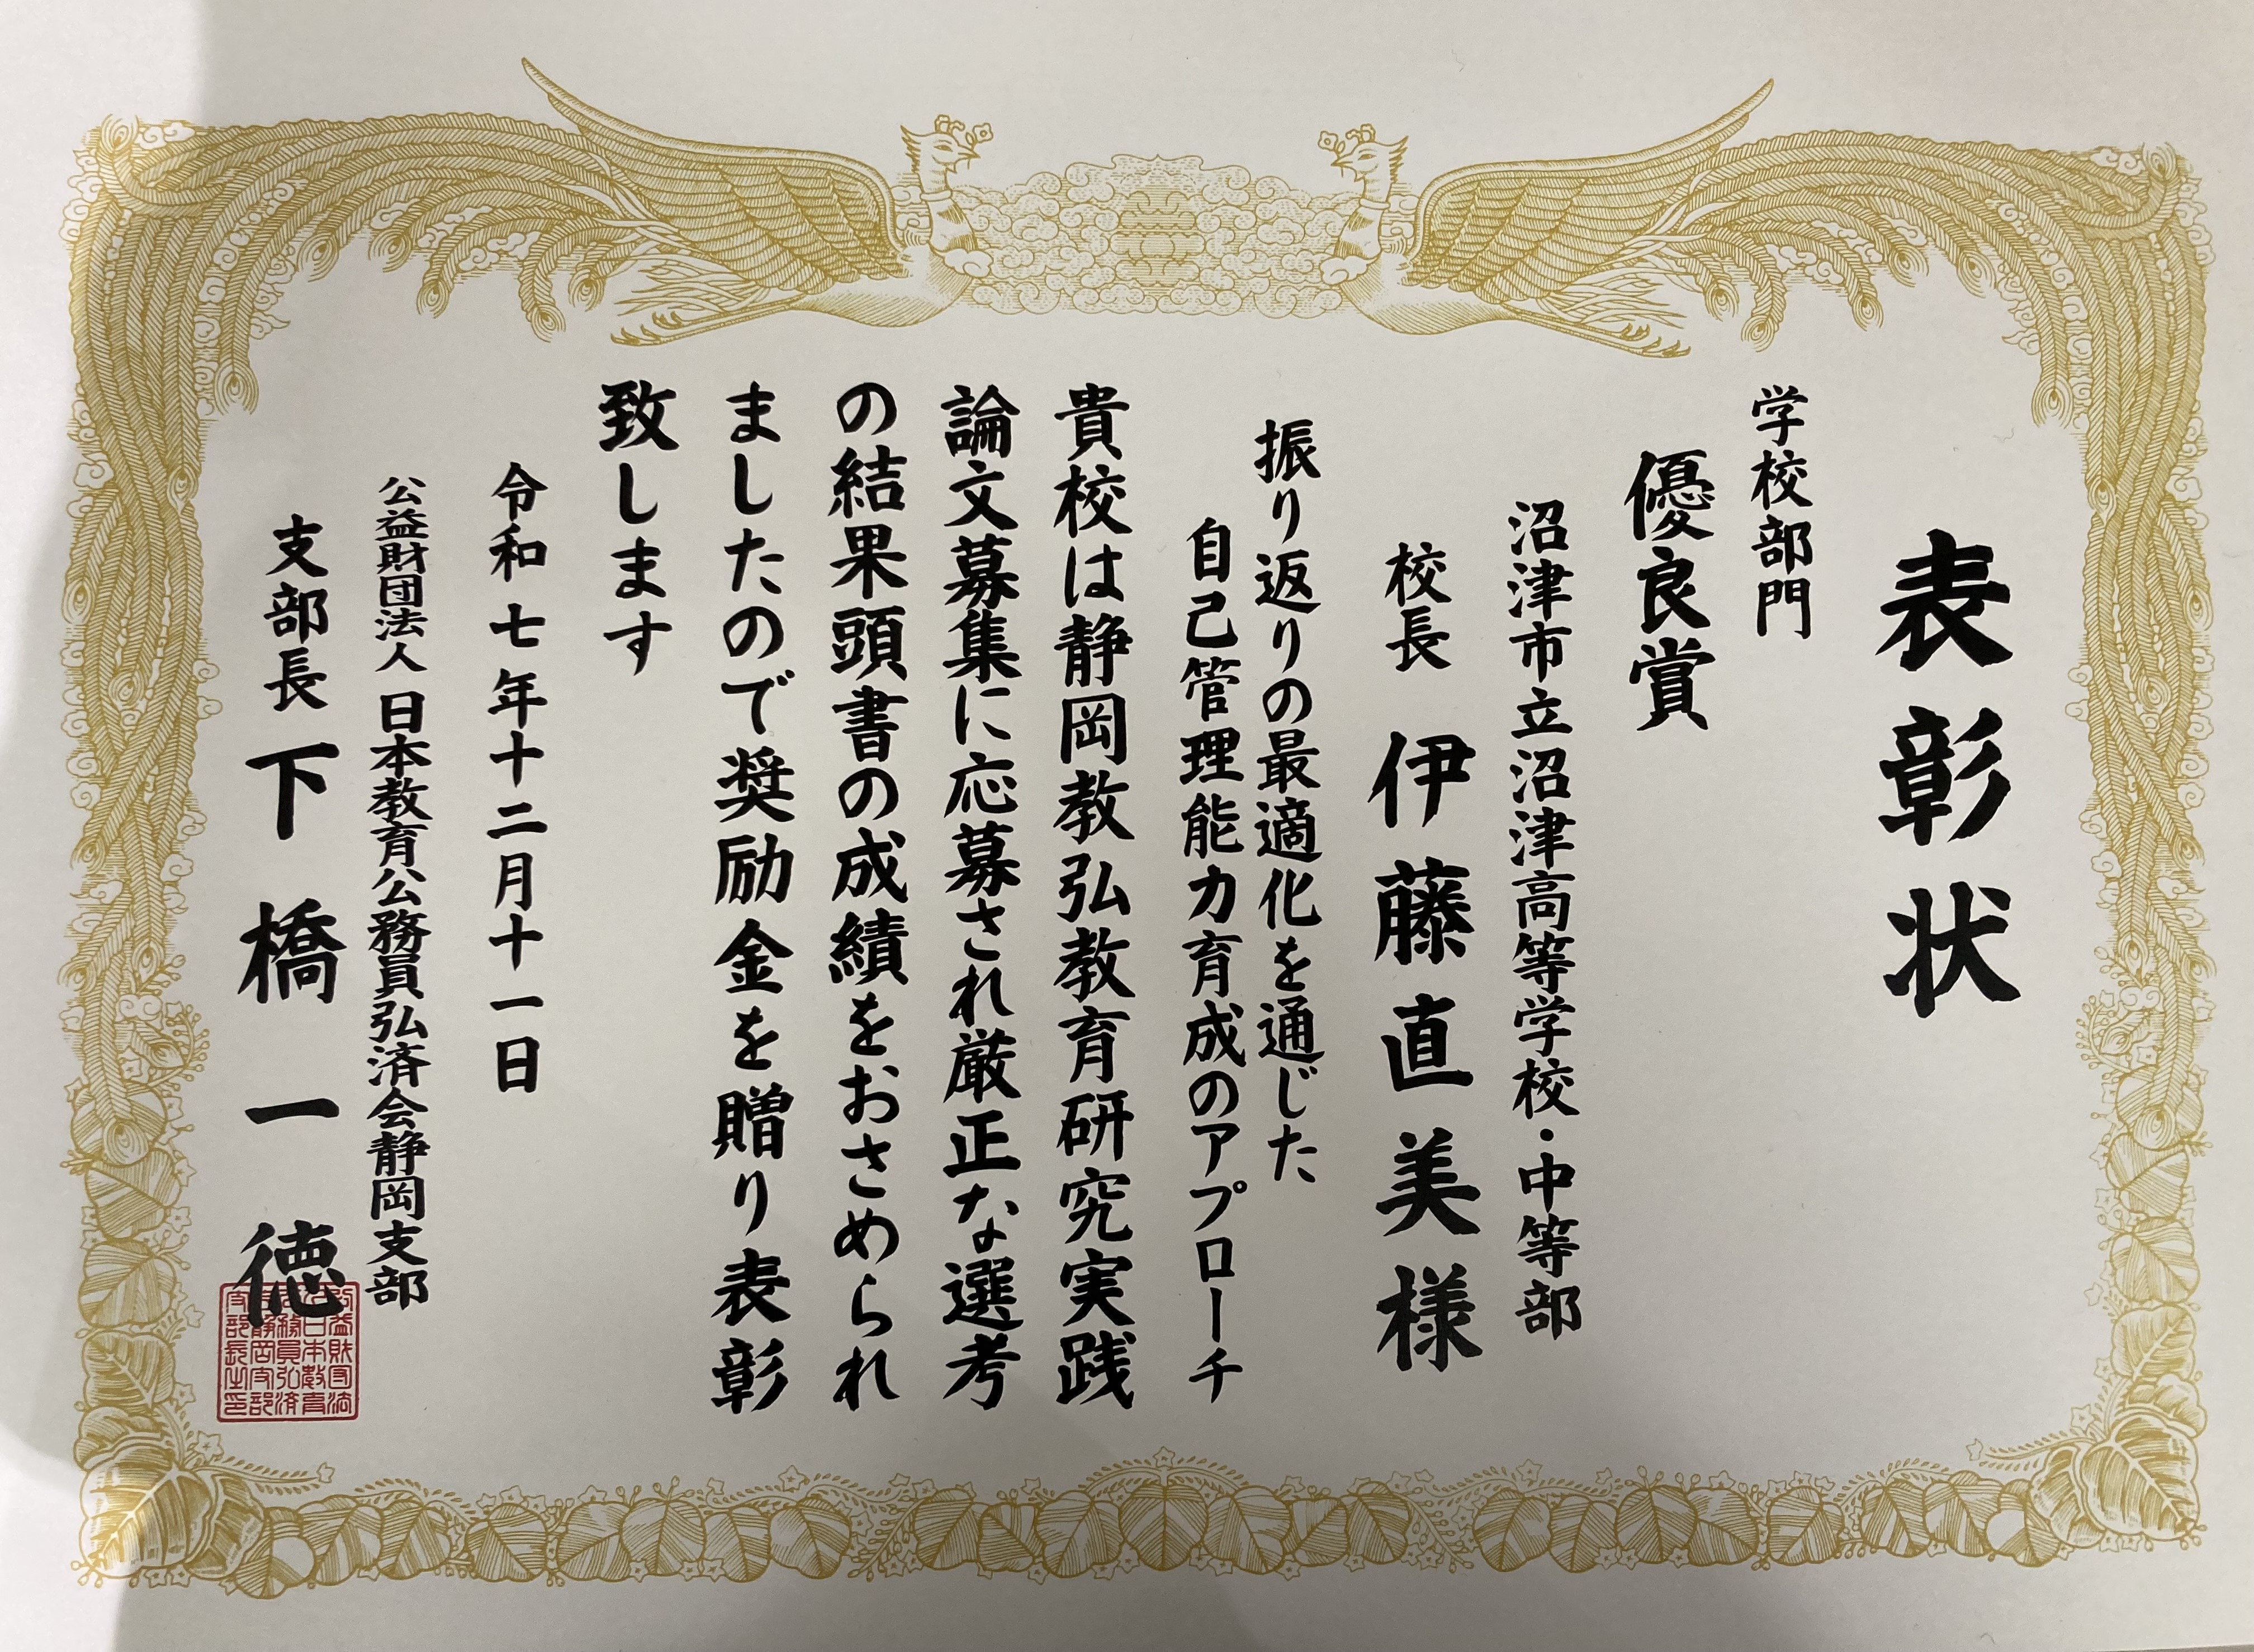 表彰状
学校部門
優良賞
沼津市立沼津高等学校・中等部
校長 伊藤直美様
振り返りの最適化を通じた
自己管理能力育成のアプローチ
貴校は静岡教弘教育研究実践
論文募集に応募され厳正な選考
の結果頭書の成績をおさめられ
ましたので奨励金を贈り表彰
致します
令和七年十二月十一日
公益財団法人 日本教育公務員弘済会静岡支部
支部長 下橋一徳